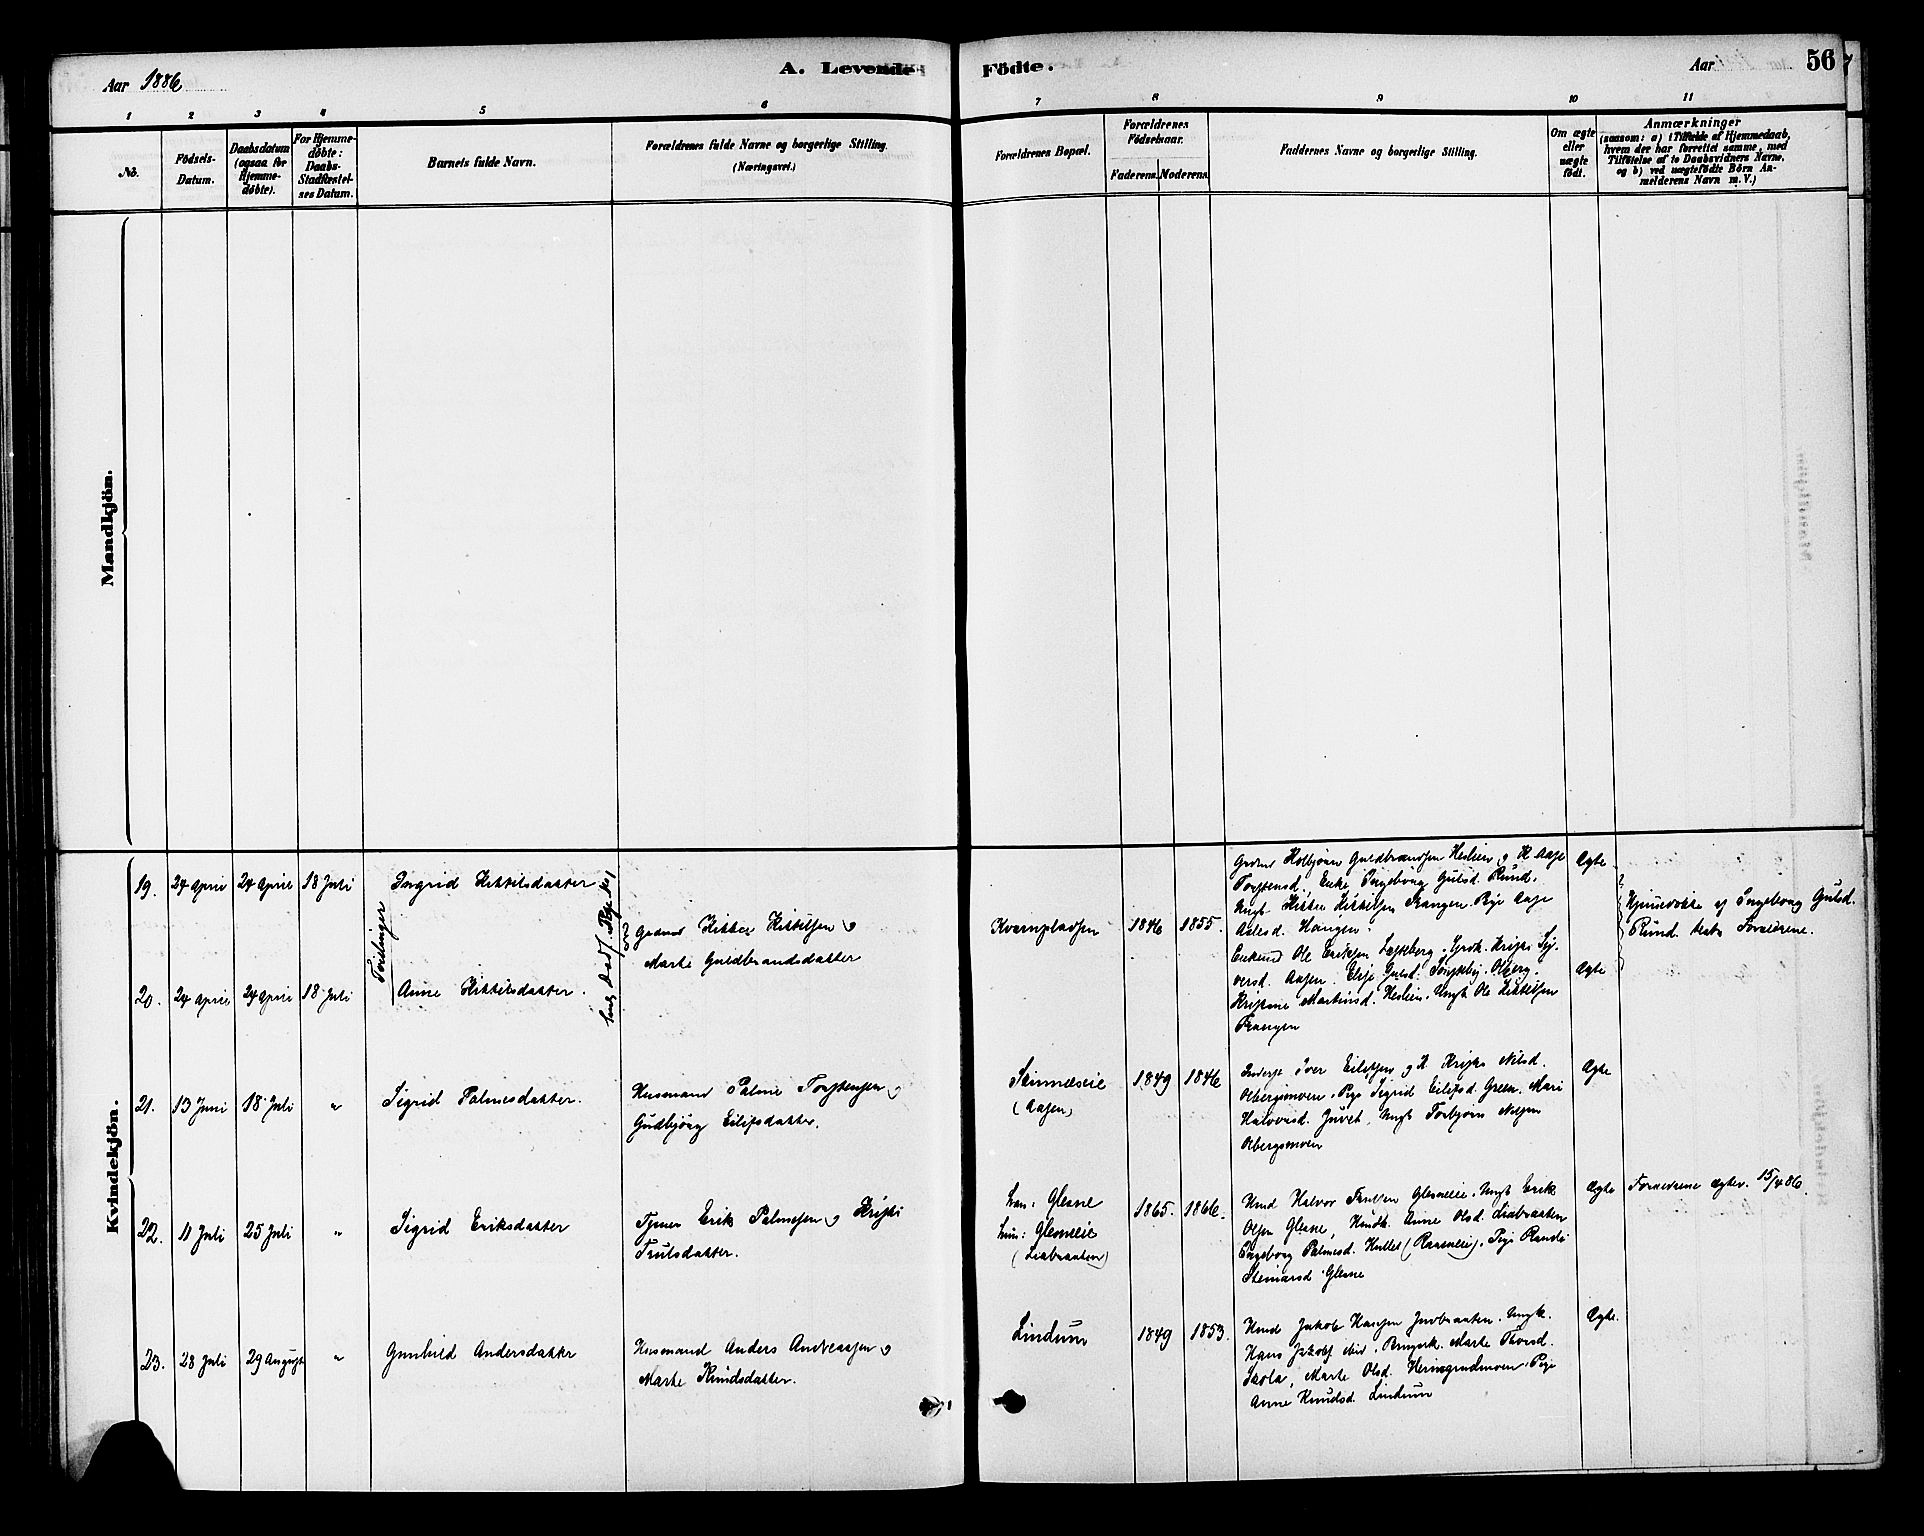 Aar 1886
A. Levende
Födte.
Aar
56
1 2 3 4 5 6 7 8 9 10 11
No.
Födsels-
Datum.
Daabsdatum
(ogsaa for
Hjemme-
døbte).
For Hjemme-
døbte:
Daabs-
Stadfæstel-
ses Datum.
Barnets fulde Navn.
Forældrenes fulde Navne og borgerlige Stilling.
(Næringsvei.)
Forældrenes Bopæl.
Forældrenes
Födselsaar.
Faderens. Moderens.
Faddernes Navne og borgerlige Stilling.
Om ægte
eller
uægte
født.
Anmærkninger
(saasom: a) i Tilfælde af Hjemmedaab,
hvem der har forrettet samme, med
Tilføielse af to Daabsvidners Navne,
og b) ved uægtefødte Börn An-
melderens Navn m. V.)
Mandkjön.
Kvindekjön.
19. 24 April 24 April 18 Juli Ingrid Kittilsdatter
Tvillinger
Gaardm Kittel Kittilsen og
Marte Guldbrandsdatter
Kvernpladsen 1846 1855.
Torstensd. Enke Ingeborg Gulsd. Rund.
Ungk. Kittil Kittilsen Trangen. Pige Aase
Aslesd. Haugen.
Ægte
Hjemmedøbt af Ingeborg Gulsd.
Rund. Forældrene.
20. 24 April 24 April 18 Juli Anne Kittilsdatter.
Enkem Ole Eriksen
versd. Aasen. Gulsd.
Kristine Martinsd. Heslien. Ungk Ole Kittilsen
Trangen
Ægte
21. 13 Juni 18 Juli " Sigrid Palmesdatter.
Husmand Palme Torstensen og
Gudbjørg Eilifsdatter.
(Aasen)
1849 1846
Iver Eilifsen og K. Nilsd.
Olbergsmoen. Pige Sigrid Eilifsd. Green. Mari
Halvorsd. Juvet, Ungk Torbjørn Nilsen
Olbergsmoen
Ægte
22. 11 Juli 25 Juli " Sigrid Eriksdatter
Erik Palmesen og
Trulsdatter.
han: Glesne
hun: Glesneeie
(Liabraaten)
1865. 1866.
Husmd Halvor Glesneeie. Ungk Erik
Olsen Glesne, Anne Olsd. Liabraaten
Ingeborg Palmesd. Hullet Pige Randi
Steinarsd. Glesne
Ægte Forældrene ægtev. 15/4 86.
23. 28 Juli 29 August " Gunhild Andersdatter
Husmand Anders Andreassen og
Marte Knudsdatter.
Lindum 1849 1853.
Husmd Jakob Hansen Ungk.
Hans Marte
Skola, Marte Olsd. Pige
Anne Knudsd. Lindum
Ægte.